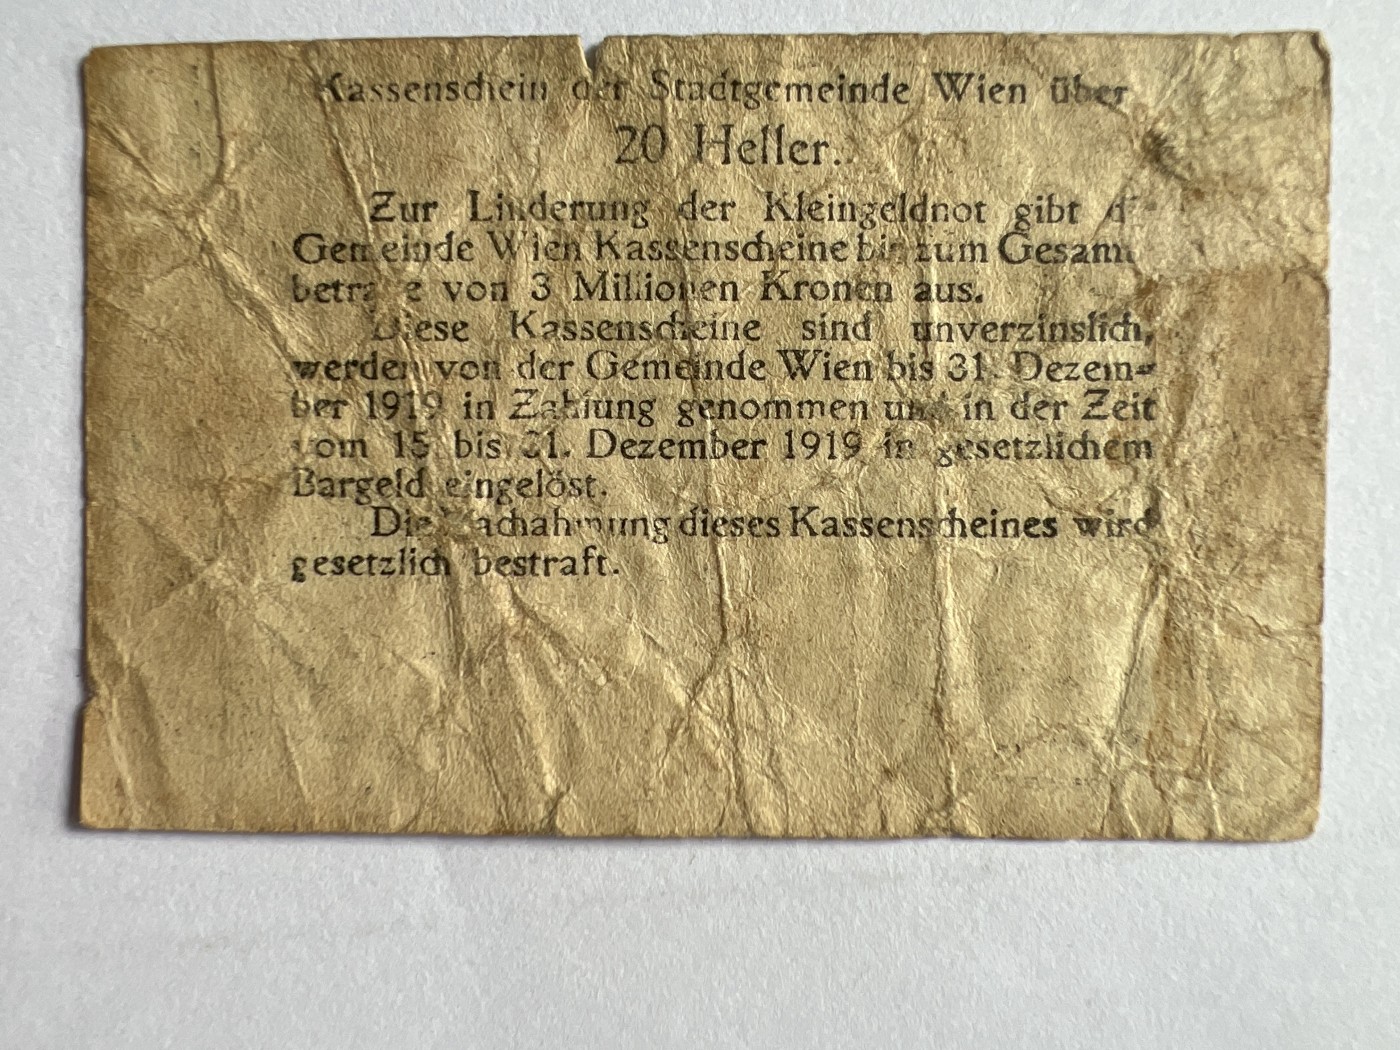 Kassenschein der Stadtgemeinde Wien über
20 Heller.
Zur Linderung der Kleingeldnot gibt
Gemeinde Wien Kassenscheine bis zum Gesamt
betrage von 3 Millionen Kronen aus.
Diese Kassenscheine sind unverzinslich,
werden von der Gemeinde Wien bis 31. Dezem-
ber 1919 in Zahlung genommen und in der Zeit
vom 15. bis 31. Dezember 1919 in gesetzlichem
Bargeld eingelöst.
Die Nachahmung dieses Kassenscheines wird
gesetzlich bestraft.